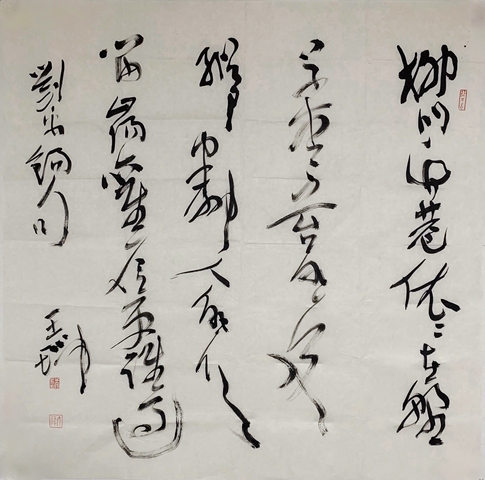 柳門竹巷依〻在野
草青苔日〻多
縱有鄰人解吹
笛山陽舊侶更誰過
劉禹錫